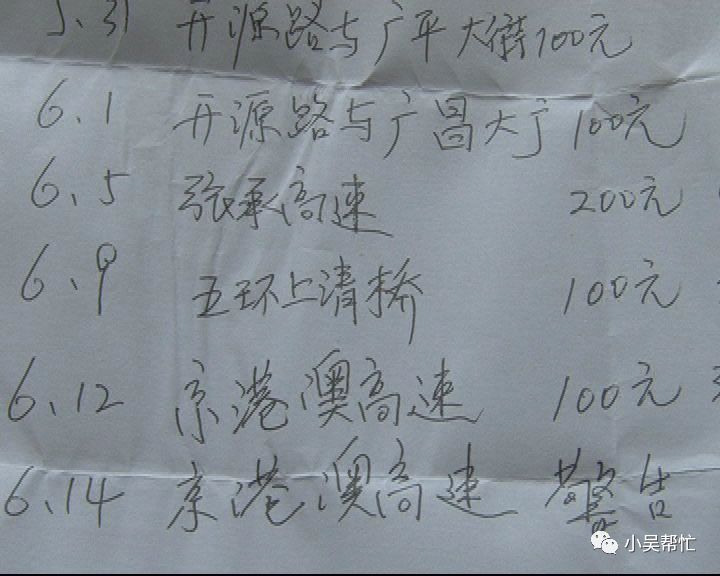 5.31 开源路与广平大街100元
6.1 开源路与广昌大广 100元
6.5 张承高速 200元
6.9 五环上清桥 100元
6.12 京港澳高速 100元
6.14 京港澳高速 警告
小吴帮忙